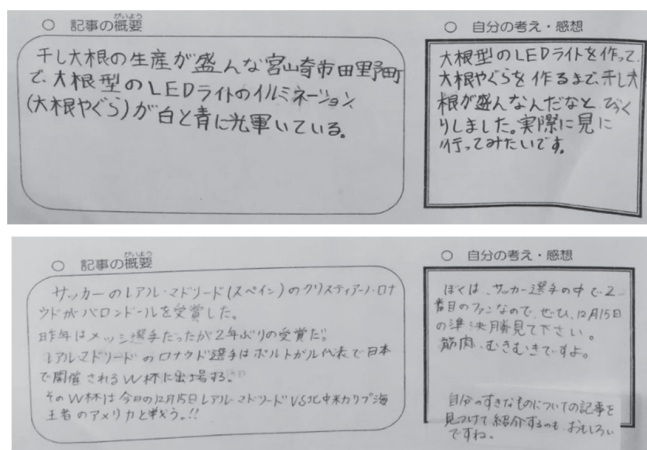 ○ 記事の概要
がいよう
干し大根の生産が盛んな宮崎市田野町
で、大根型のLEDライトのイルミネーション
(大根やぐら)が白と青に光輝いている。
○ 自分の考え・感想
大根型のLEDライトを作って、
大根やぐらを作るまで、干し大
根が盛んなんだなと、びっく
りしました。実際に見に
行ってみたいです。
○ 記事の概要
がいよう
サッカーのレアル・マドリード(スペイン)のクリスティアーノ・ロナ
ウドがバロンドールを受賞した。
昨年はメッシ選手だったが2年ぶりの受賞だ。
レアルマドリードのロナウド選手はポルトガル代表で日本
で開催されるW杯に出場する。
そのW杯は今日の12月15日レアル・マドリードVS北中米カリブ海
王者のアメリカと戦う。!!
○ 自分の考え・感想
ぼくは、サッカー選手の中で2
番目のファンなので、ぜひ、12月15日
の準決勝見て下さい。
筋肉、むきむきですよ。
自分のすきなものについての記事を
見つけて紹介するのも、おもしろい
ですね。